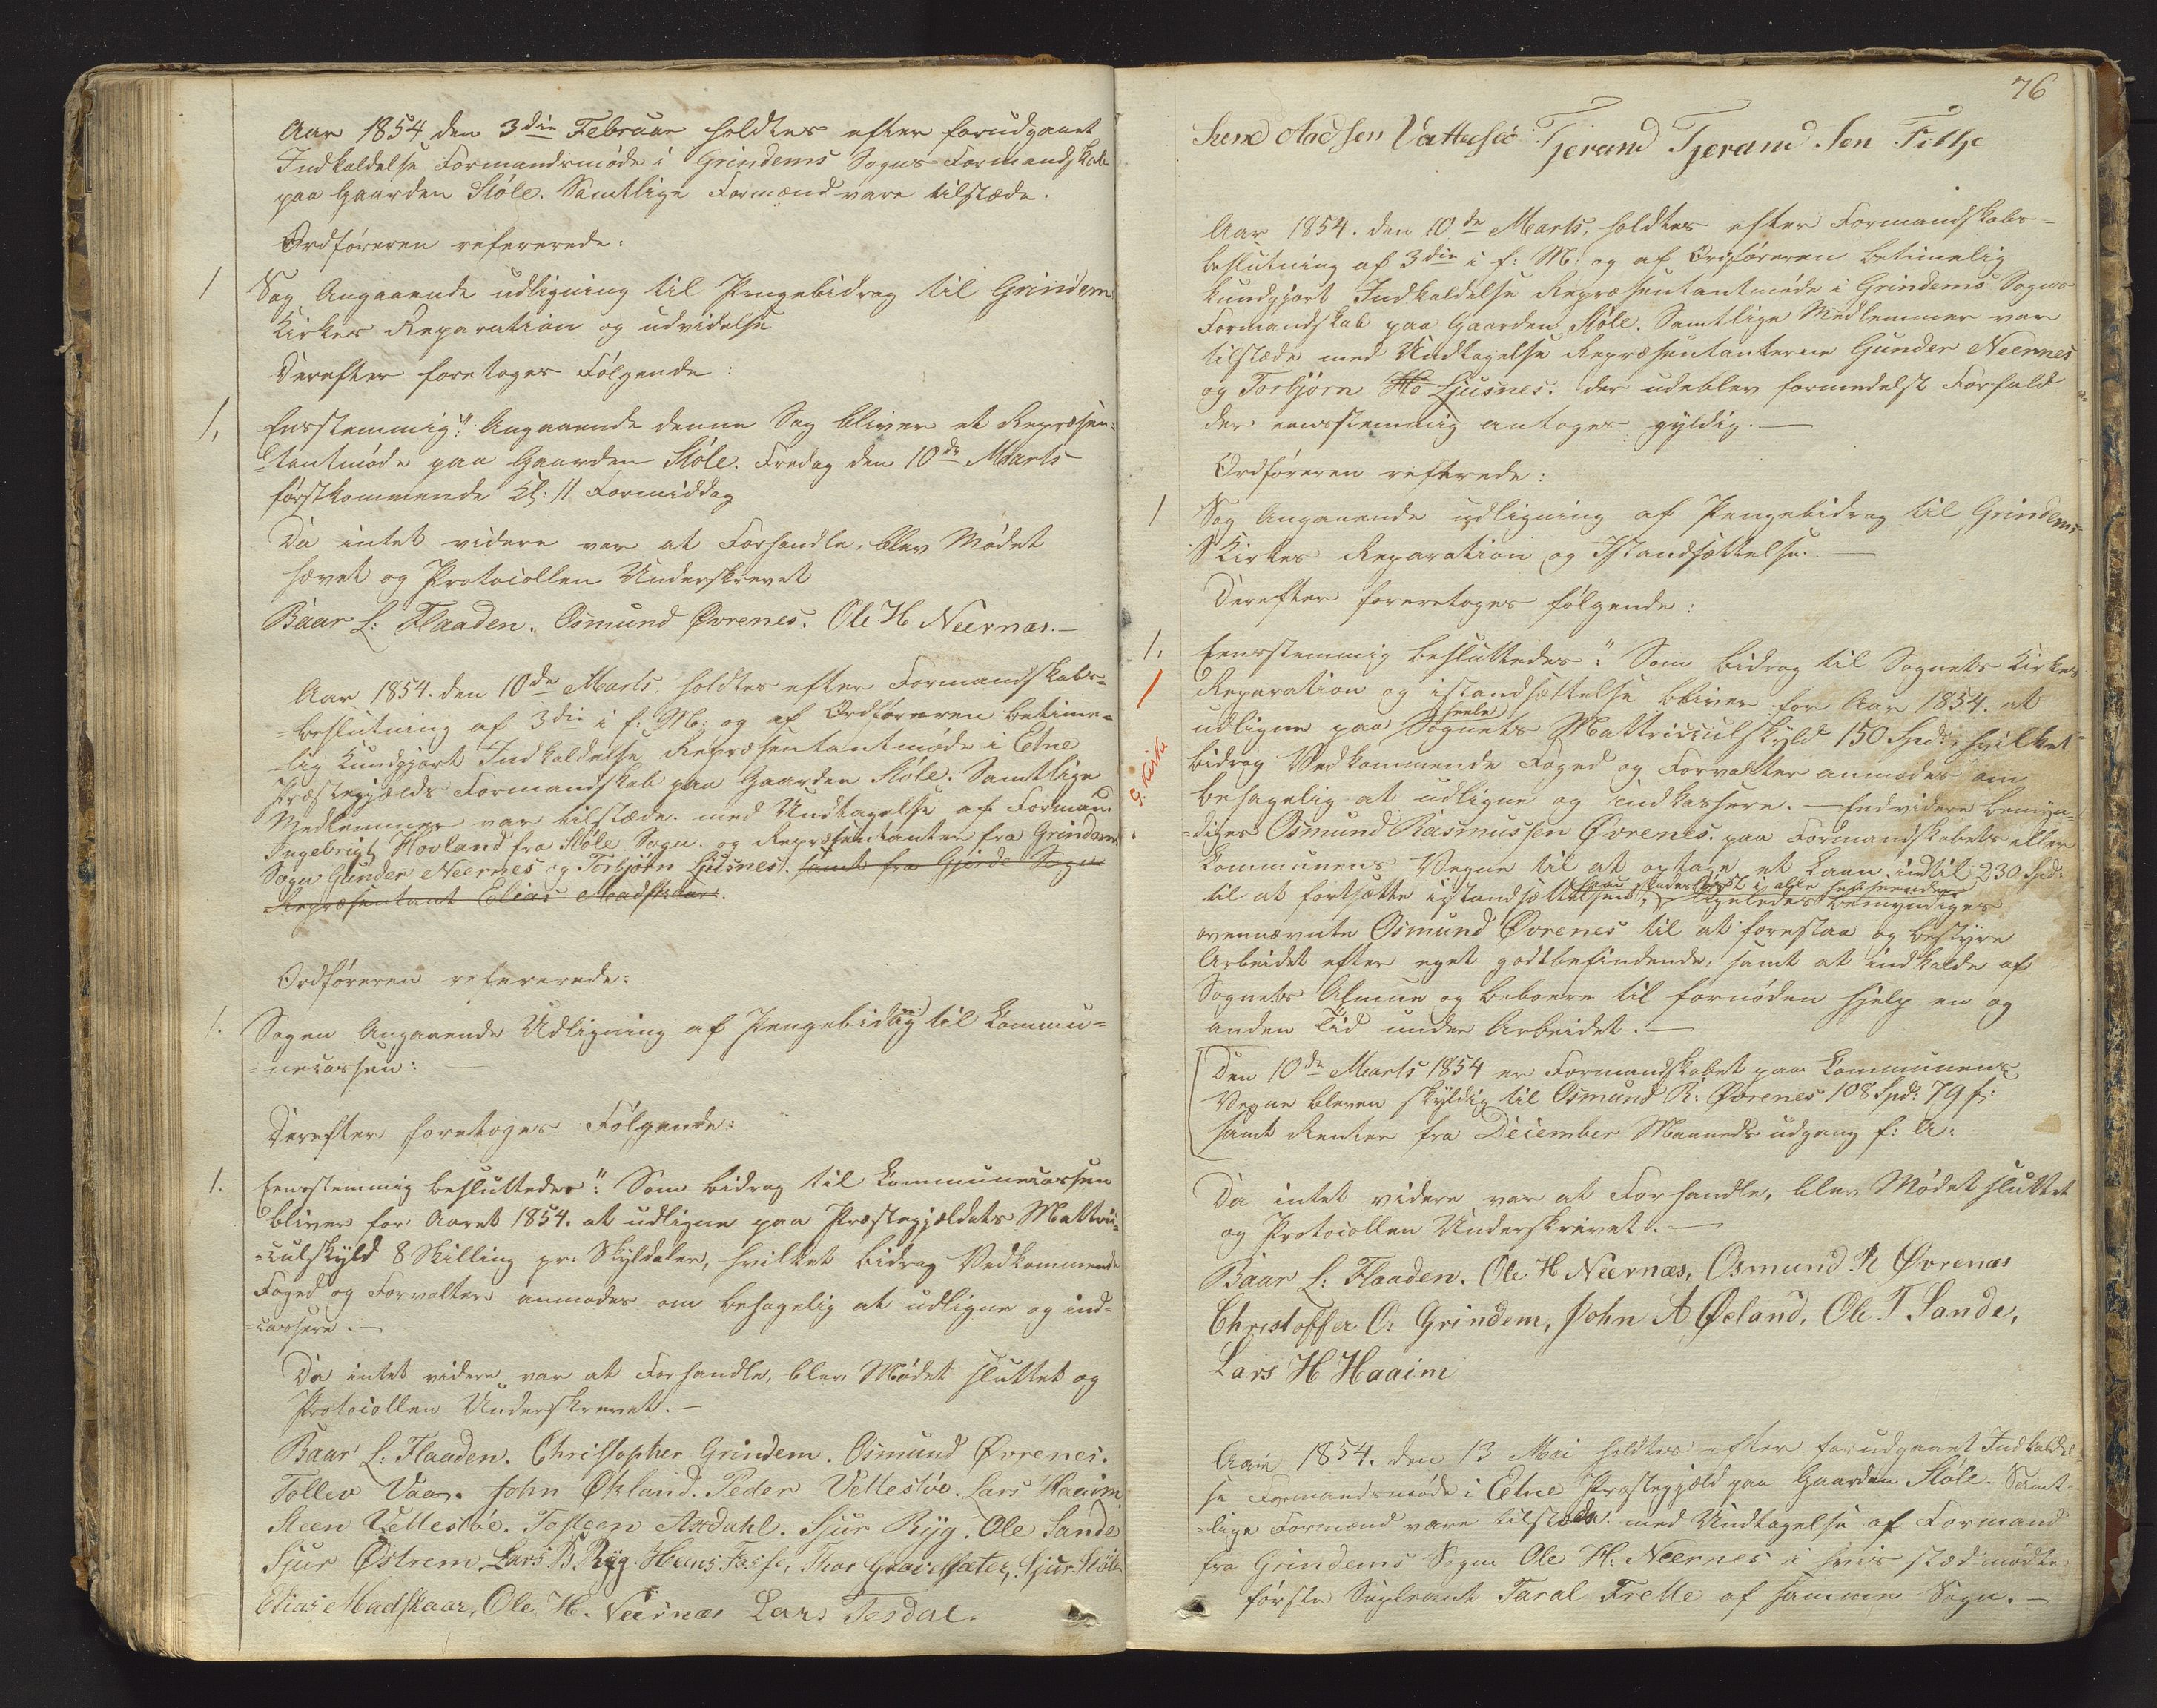 Aar 1854 den 3die Februar holdtes efter forudgaaet
Indkaldelse Formandsmøde i Grindems Sogns Formandskab
paa Gaarden Støle. Samtlige Formænd vare tilstæde.
Ordføreren refererede:
1 Sag Angaaende udligning til Pengebidrag til Grindem
Kirkes Reparation og udvidelse
Derefter foretoges Følgende:
1, Eenstemmig: "Angaaende denne Sag bliver et Repræsen-
=tantmøde paa Gaarden Støle. Fredag den 10de Marts
førstkommende Kl: 11 Formiddag
Da intet videre var at Forhandle, blev Mødet
hævet og Protocollen Underskrevet
Baar L: Flaaden. Osmund Øvrenes. Ole H Neernæs.-
Aar 1854. den 10de Marts, holdtes efter Formandskabs-
=beslutning af 3die i f: M: og af Ordføreren betime-
=lig Kundgjort Indkaldelse Repræsentantmøde i Etne
Præstegjælds Formandskab paa Gaarden Støle. Samtlige
Medlemmer var tilstæde. med Undtagelse af Formand
Ingebrigt Hovland fra Støle Sogn. og Repræsentanter fra Grindem
Sogn Gunder Neernes og Torbjørn Ljusnes. samt fra Gjerde Sogn
Repræsentant Elias Madskaar.
Ordføreren refererede:
1. Sagen Angaaende Udligning af Pengebidrag til Commu-
=necassen:
Derefter foretoges Følgende:
1. Eensstemmig besluttedes: "Som bidrag til Communecassen
bliver for Aaret 1854. at udligne paa Præstegjældets Mattri-
=culskyld 8 Skilling pr: Skyldaler, hvilket bidrag Vedkommende
Foged og Forvalter anmodes om behagelig at udligne og ind-
=cassere.-
Da intet videre var at Forhandle, blev Mødet sluttet og
Protocollen Underskrevet.-
Baar L: Flaaden. Christopher Grindem. Osmund Øvrenes.
Tollev Vaa. John Økland. Peder Vettestøe. Lars Haaim
Steen Vettestøe. Tosteen Axdahl. Sjur Ryg. Ole Sande
Sjur Østrem. Lars B Ryg. Hans Fosse, Thor Sjur Støle
Elias Madskaar, Ole H. Neernæs Lars Tesdal.
76
Stene Aadsen Vattestø Tjerand Tjerand.sen Fitje
Aar 1854. den 10de Marts, holdtes efter Formandskabs-
beslutning af 3die i f: M: og af Ordføreren betimelig
kundgjort Indkaldelse Repræsentantmøde i Grindems Sogns
Formandskab paa Gaarden Støle. Samtlige Medlemmer var
tilstæde med Undtagelse Repræsentanterne Gunder Neernes
og Torbjørn Ljusnes. der udeblev formedelst Forfald
der eensstemmig antoges gyldig.-
Ordføreren refterede:
1 Sag Angaaende udligning af Pengebidrag til Grindems
Kirkes Reparation og Istandsættelse.-
Derefter foreretoges følgende:
1, Eensstemmig besluttedes: "Som bidrag til Sognets Kirkes
Reparation og istandsættelse bliver for Aar 1854. at
heele
udligne paa Sognets Mattricculskyld 150 Spd: hvilket
G. Kirke
bidrag Vedkommende Foged og Forvalter anmodes om
behagelig at udligne og indkassere.- Endvidere bemyn-
=diges Osmund Rasmussen Øvrenes. paa Formandskabets eller
Communens Vegne til at optage et Laan indtil 230 Spd:
til at fortsætte istandsættelsen, ligeledes bemyndiges
ovennævnte Osmund Øvrenes til at forestaa og bestyre
Arbeidet efter eget godtbefindende, samt at indkalde af
Sognets Almue og beboere til fornøden hjelp en og
anden Tid under Arbeidet.-
Den 10de Marts 1854 er Formandskabet paa Communens
Vegne bleven skyldig til Osmund R: Øvrenes 108 Spd: 79 s:
samt Renter fra December Maaneds udgang f: A:
Da intet videre var at Forhandle, blev Mødet sluttet
og Protocollen Underskrivet.-
Baar L: Flaaden. Ole H Neernæs, Osmund R Øvrenæs
Christoffer O: Grindem, John A Øeland, Ole T Sande,
Lars H Haaim
Aar 1854. den 13 Mai holdtes efter forudgaaet Indkaldel
se Formandsmøde i Etne Præstegjæld paa Gaarden Støle. Samt-
=lige Formænd vare tilstæde med Undtagelse af Formand
fra Grindems Sogn Ole H. Neernes i hvis sted mødte
første Supleant Taral Frette af samme Sogn.-